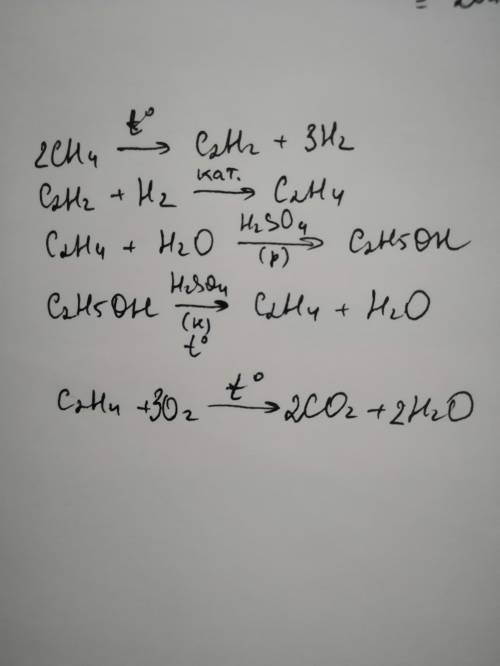 2CH₄ →(t°) C₂H₂ + 3H₂
C₂H₂ + H₂ →(кат.) C₂H₄
C₂H₄ + H₂O →(H₂SO₄ (р)) C₂H₅OH
C₂H₅OH →(H₂SO₄ (к) t°) C₂H₄ + H₂O
C₂H₄ + 3O₂ →(t°) 2CO₂ + 2H₂O